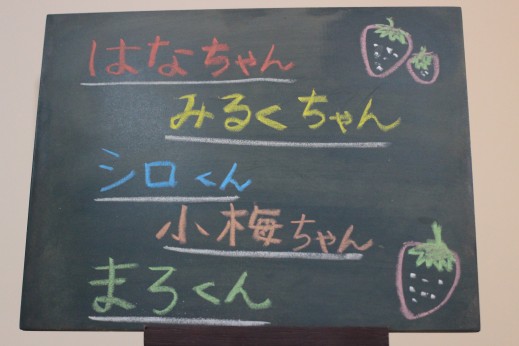 はなちゃん
みるくちゃん
シロくん
小梅ちゃん
まろくん